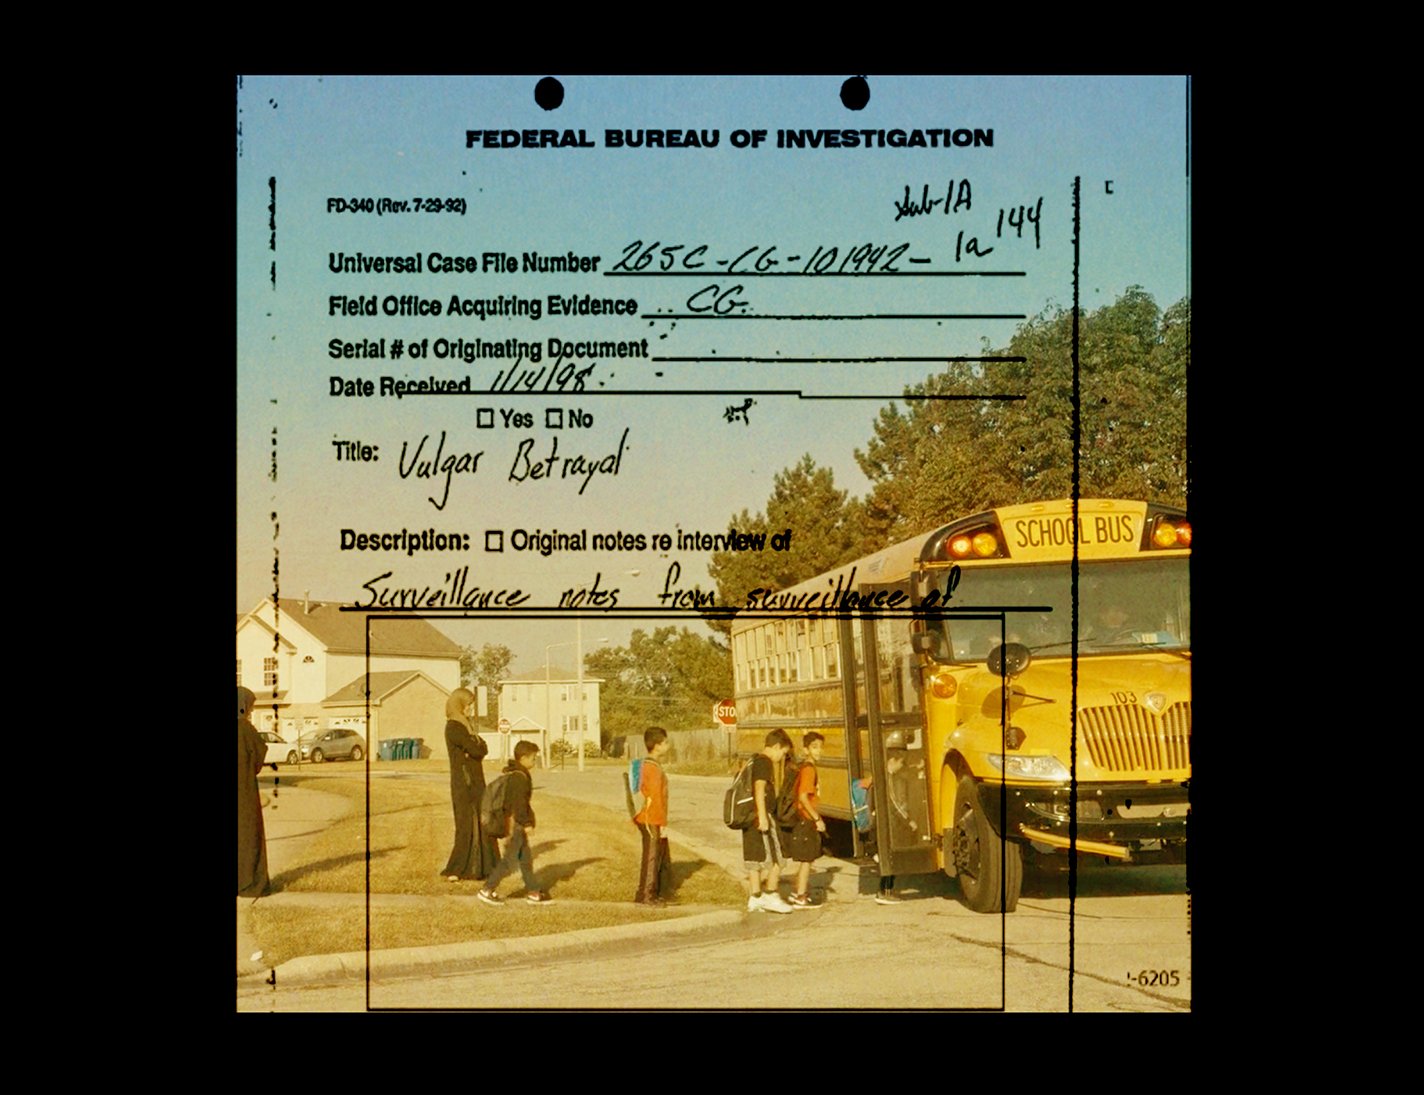 FEDERAL BUREAU OF INVESTIGATION
FD-340 (Rev. 7-29-92)
Sub-1A
Universal Case File Number 265C-CG-101942- 1a 144
Field Office Acquiring Evidence CG
Serial # of Originating Document
Date Received 1/14/98
Yes No
Title: Vulgar Betrayal
Description: Original notes re interview of
Surveillance notes from surveillance of
SCHOOL BUS
STO
103
-6205